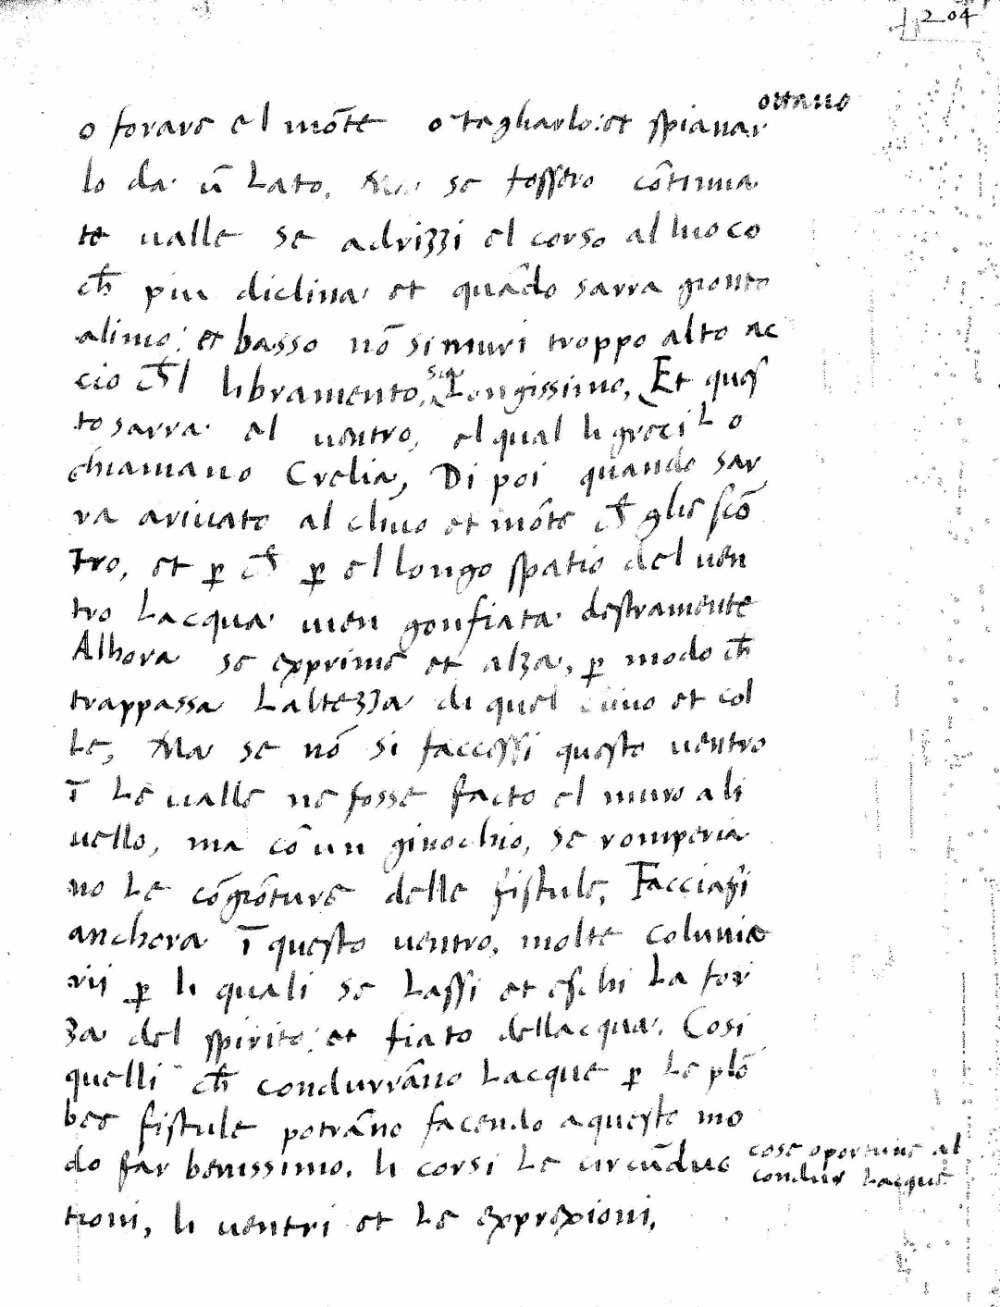 204
ottauo
o forare el mõte o tagliarlo: et spianar
lo da ũ lato. Ma se fossero cõtinua
te ualle se adrizzi el corso al luoco
ch̄ piu diclina et quãdo sarra gionto
alimo: et basso nõ si muri troppo alto ac
cio ch̄l libramento, sia Longissimo, Et ques
to sarra el uentro, el qual li greci Lo
chiamano Crelia, Di poi quando sar
ra ariuato al cliuo et mõte ch̄ glie scõ
tro, et ꝑ ch̄ ꝑ el longo spatio del uen
tro Lacqua uien gonfiata destramente
Alhora se exprime et alza, ꝑ modo ch̄
trappassa Laltezza di quel cliuo et col
Le, Ma se nõ si faccessi questo uentro
ĩ Le ualle ne fosse facto el muro a li
uello, ma cõ un ginochio, se romperia
no Le cõgiõture delle fistule, Facciasi
anchora ĩ questo uentro, molte colunia
rii ꝑ li quali se Lassi et eschi La for
za del spirito: et fiato dellacqua. Cosi
quelli ch̄ condurrãno Lacque ꝑ Le plõ
bee fistule potrãno facendo a questo mo
do far benissimo, li corsi Le circũduc
tioni, li uentri et Le expressioni,
cose oportune al
condur Lacque